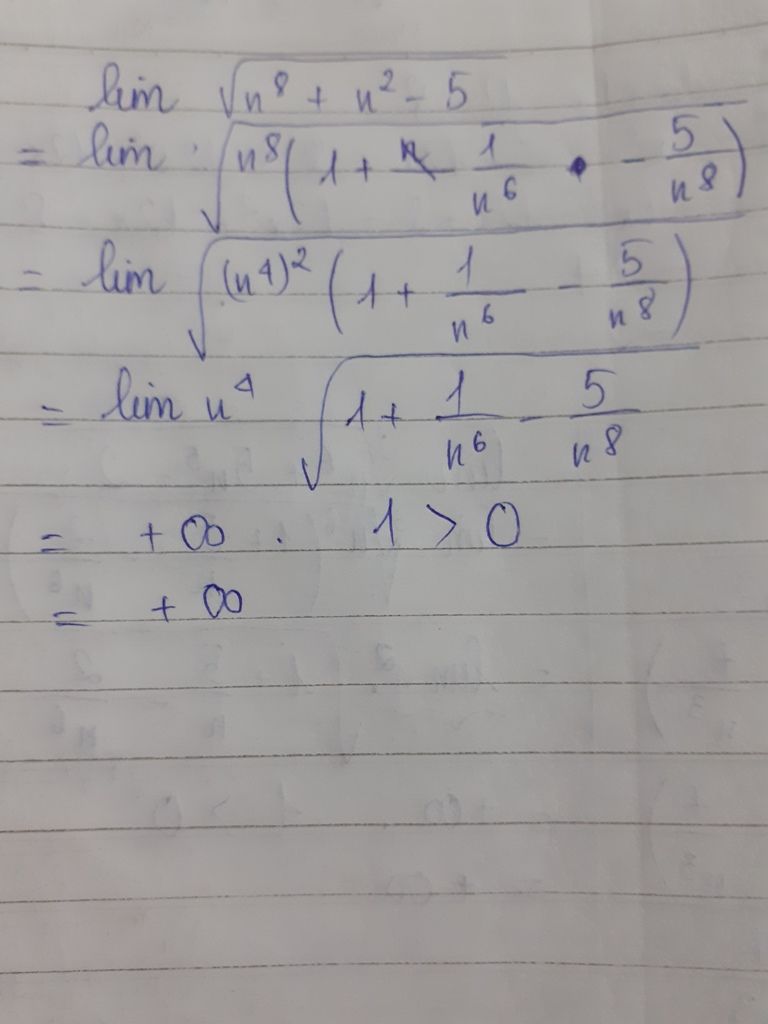 lim √(n⁸ + n² - 5)
= lim √(n⁸(1 + 1/n⁶ - 5/n⁸))
= lim √((n⁴)²(1 + 1/n⁶ - 5/n⁸))
= lim n⁴ √(1 + 1/n⁶ - 5/n⁸)
= +∞ . 1 > 0
= +∞